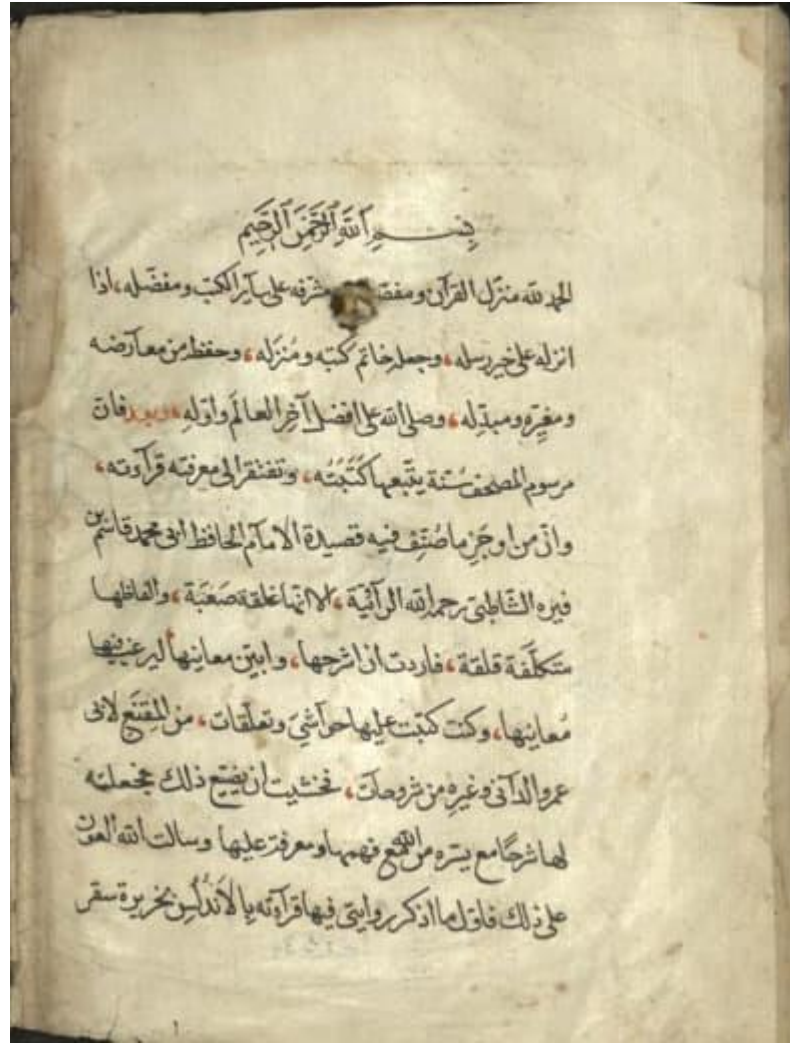 بِسْمِ ٱللَّهِ ٱلرَّحْمٰنِ ٱلرَّحِيمِ
الحمد لله منزل القرآن ومفصله ومشرفه على ساير الكتب ومفضّله، اذا
انزله على خير رسله، وجعله خاتم كتبه ومُنزَله، وحفظه من معآرضه
ومغيّره ومبدّله، وصلى الله على افضل آخر العالَم واوّله، وبعد فان
مرسوم المصحف سُنّة يتّبعها كُتُبُتُه، وتفتقر الى معرفته قرآءته،
وانّ من اوجَزِ ما صُنّف فيه قصيدة الامآم الحافظ ابى محمد قاسم بن
فيره الشّاطبىّ رحمه الله الرآئيّة، الا انّها غلقة صَعبَة، والفاظها
متكلّفة قلقة، فاردت ان اشرحها، وابيّن معاينها ليرغب فيها
مُعاينها، وكنت كتبت عليها حوآشىَ وتعلّقات، من المقنَع لابى
عمرو الدآنى وغيره من شروحات، فخشيت ان يضيّع ذلك فجعلته
لها شرحًا مع يسره من الله مع فهمها ومعرفة عليها وسالت الله العون
على ذلك فاول ما اذكر روايتى فيها قرآءته بالاَندُلُس بخريرة سقر